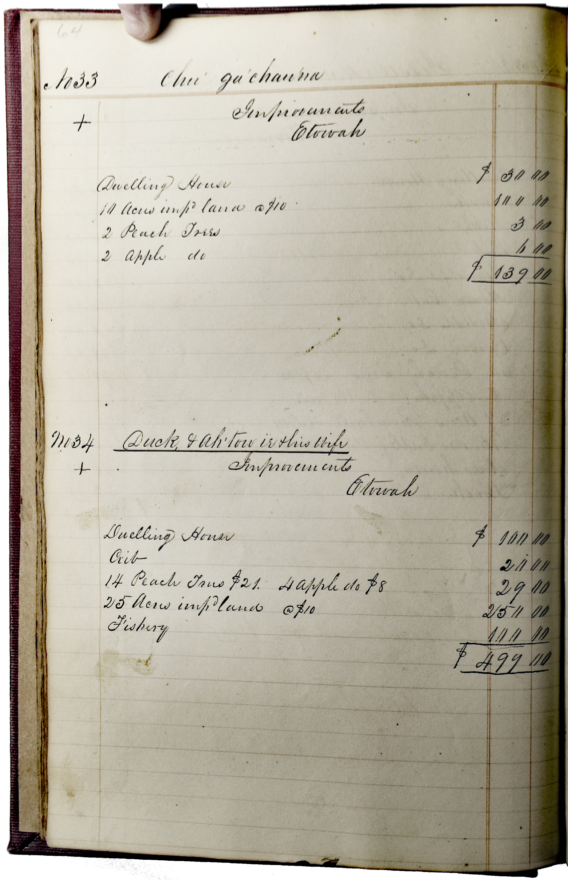 64
No 33 Chu ga chau na
+ Improvements
Etowah
Dwelling House $ 30 00
10 Acres imp^d land @ $10 100 00
2 Peach Trees 3 00
2 Apple do 6 00
$ 139 00
No 34 Duck, & his Wife
+ Improvements
Etowah
Dwelling House $ 100 00
Crib 20 00
14 Peach Trees $21. 4 apple do $8 29 00
25 Acres imp^d land @ $10 250 00
Fishery 100 00
$ 499 00